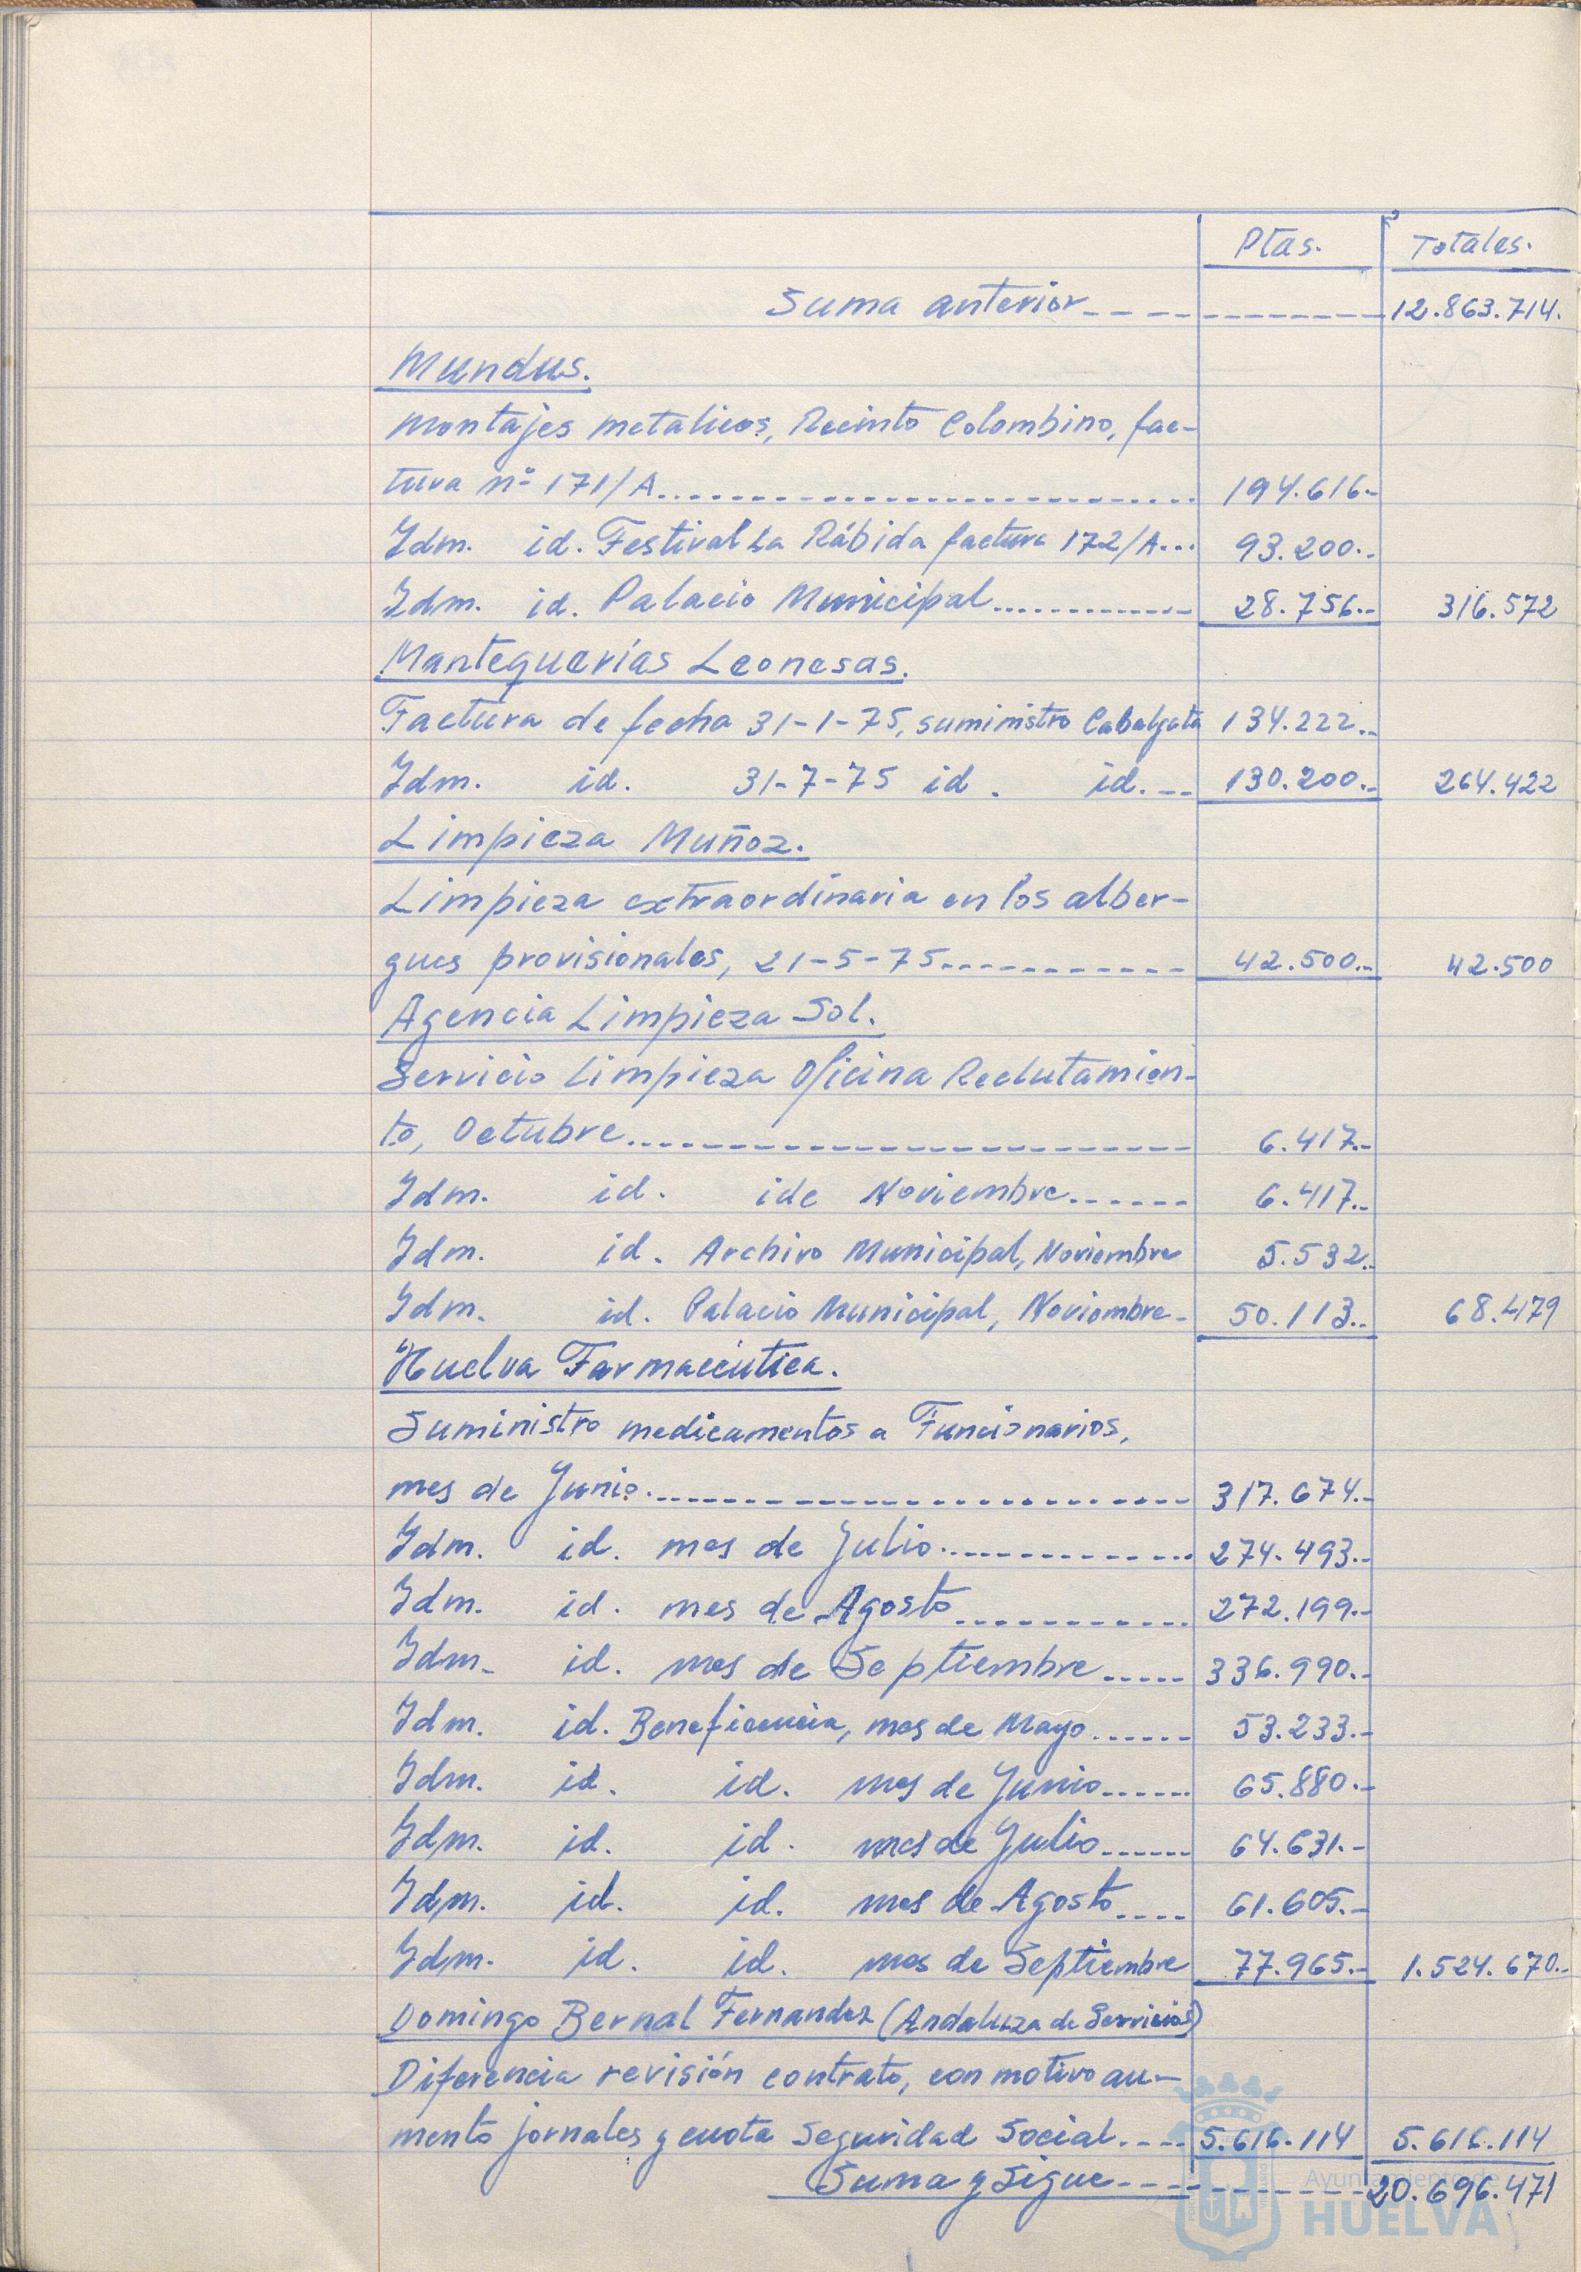 Ptas. Totales.
Suma anterior 12.863.714.
Mundus.
Montajes metalicos, Recinto Colombino, fac-
tura nº 171/A 194.616.-
Idm. id. Festival La Rábida factura 172/A 93.200.-
Idm. id. Palacio Municipal 28.756.- 316.572
Mantequerías Leonesas.
Factura de fecha 31-1-75, suministro Cabalgata 134.222.-
Idm. id. 31-7-75 id. id. 130.200.- 264.422
Limpieza Muñoz.
Limpieza extraordinaria en los alber-
gues provisionales, 21-5-75 42.500.- 42.500
Agencia Limpieza Sol.
Servicio Limpieza Oficina Reclutamien-
to, Octubre 6.417.-
Idm. id. ide Noviembre 6.417.-
Idm. id. Archivo Municipal, Noviembre 5.532.-
Idm. id. Palacio Municipal, Noviembre 50.113.- 68.479
Huelva Farmaceutica.
Suministro medicamentos a Funcionarios,
mes de Junio 317.674.-
Idm. id. mes de Julio 274.493.-
Idm. id. mes de Agosto 272.199.-
Idm. id. mes de Septiembre 336.990.-
Idm. id. Beneficencia, mes de Mayo 53.233.-
Idm. id. id. mes de Junio 65.880.-
Idm. id. id. mes de Julio 64.631.-
Idm. id. id. mes de Agosto 61.605.-
Idm. id. id. mes de Septiembre 77.965.- 1.524.670.-
Domingo Bernal Fernandez (Andaluza de Servicios)
Diferencia revisión contrato, con motivo au-
mento jornales y cuota Seguridad Social 5.616.114 5.616.114
Suma y Sigue 20.696.471
Ayuntamiento de
HUELVA